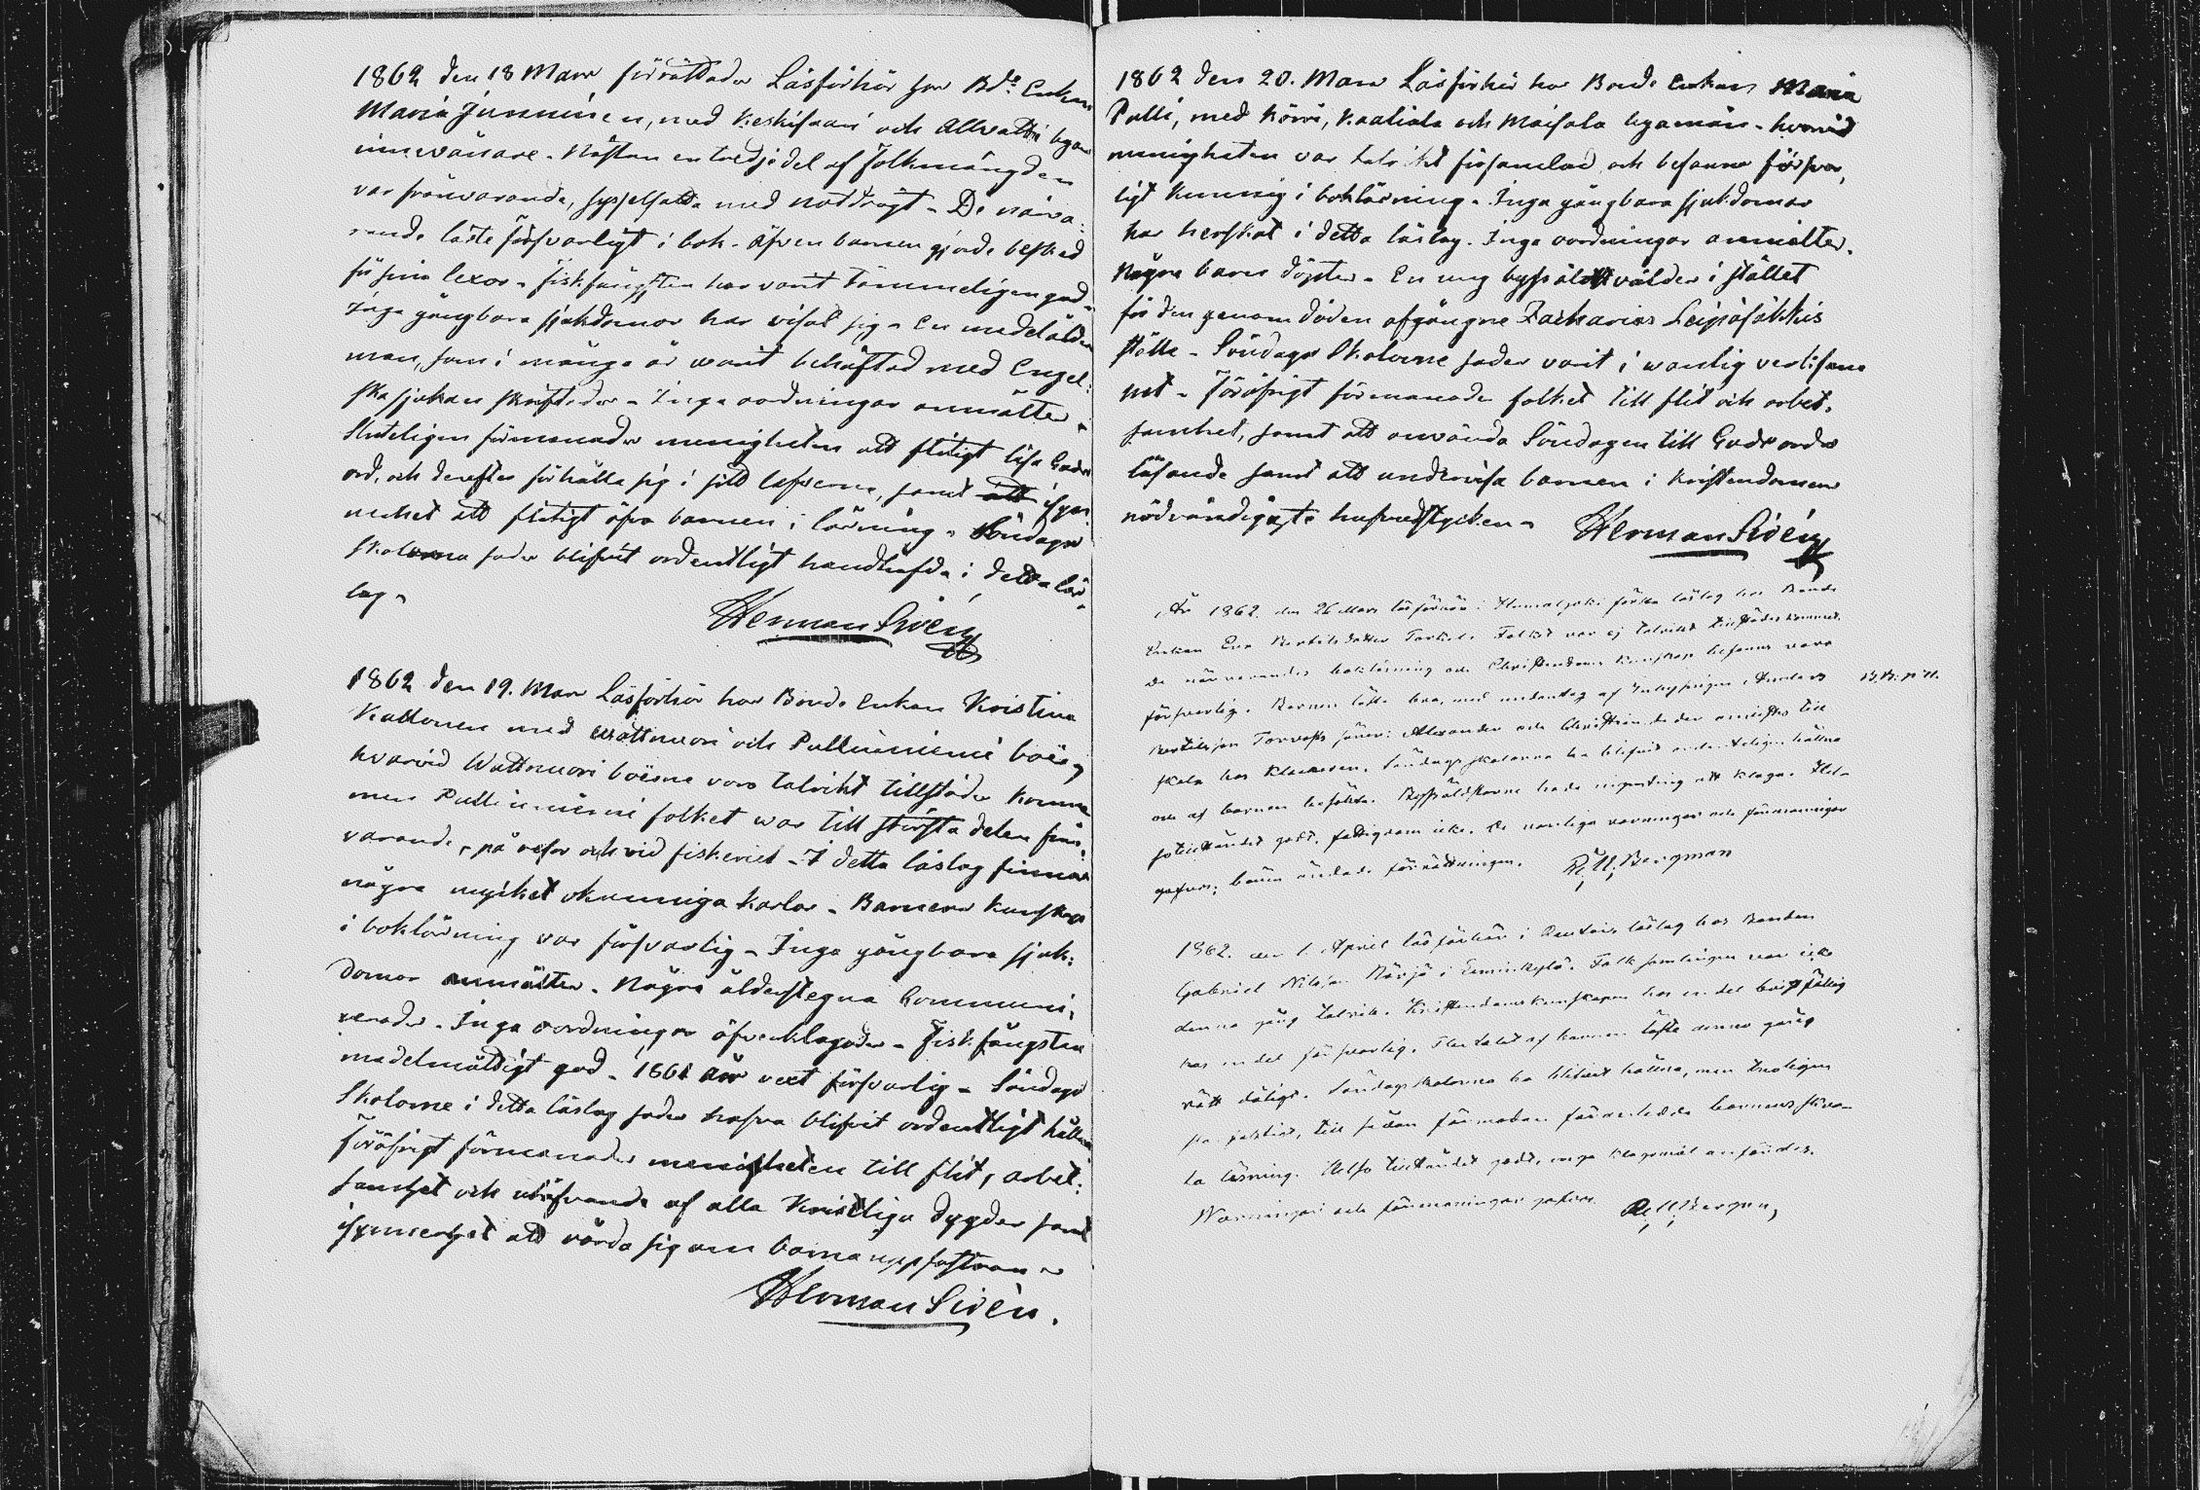 1862 den 18 Mars förrättades Läsförhör hos Bd. Enkan
Maria Junninen, med Keskisaari och Allvattri byars
innevånare. Nästan en tredjedel af folkmängden
var frånvarande, sysselsatta med notdrägt. De närva-
rande läste försvarligt i bok. Äfven barnen gjorde besked
för sina lexor. Fiskfångsten har varit tämmeligen god.
Inga gångbara sjukdomar har visat sig. En medelålders
man, som i många år warit behäftad med Engel-
ska sjukan skriftades. Inga oordningar anmältes.
Sluteligen förmanades menigheten att flitigt läsa Guds
ord, och derefter förhålla sig i sitt lefverne, samt att i syn-
nerhet att flitigt öfva barnen i lärning. Söndags
skolorna sades blifvit ordentligt handhafda i detta läs-
lag.
Herman Sivén
1862 den 19. Mars Läsförhör hos Bonde Enkan Kristina
Kallonen med Wättnuori och Pulliniemi boër,
hvarvid Wattnuori boërne voro talrikt tillstädes komne
men Pulliniemi folket war till största delen från-
varande, på resor och vid fiskeriet. I detta läslag finnas
några mycket okunniga karlar. Barnens kunskap
i boklärning var försvarlig. Inga gångbara sjuk-
domar anmältes. Några ålderstegna communi-
cerades. Inga oordningar öfverklagades. Fiskfångsten
medelmåttigt god. 1861 års vext försvarlig. Söndags
Skolorne i detta läslag sades hafva blifvit ordentligt hållna
Föröfrigt förmanades menigheten till flit, arbet-
samhet och utöfvande af alla Kristliga dygder samt
isynnerhet att vårda sig om barna uppfostran
Herman Sivén.
1862 den 20. Mars Läsförhör hos Bonde Enkan Maria
Pulli, med Körri, Kaaliala och Maisala byamän. hvarvid
menigheten var talrikt församlad, och befanns försvar-
ligt kunnig i boklärning. Inga gångbara sjukdomar
har herskat i detta läslag. Inga oordningar anmältes.
Några barn döptes. En ny byssälst valdes i stället
för den genom döden afgångne Zacharias
ställe. Söndags Skolorne sades varit i wanlig verksam
het. Föröfrigt förmanades folket till flit och arbet-
samhet, samt att använda Söndagen till Guds ords
läsande samt att undervisa barnen i Kristendomens
nödvändigaste hufvudstycken.
Herman Sivén
År 1862. den 26 Mars läsförhör i första läslag hos Bonde
Enkan Eva Bertilsdotter. Folket var ej talrikt tillstädes kommet.
De när varandes boklärning och Christendoms kunskap befanns vara
försvarlig. Barnen läste bra, med undantag af Inhysingen Anders
söner: Alexander och Christian de der anvistes till
skola hos Klockaren. Söndags skolorna ha blifvit ordenteligen hållna
och af barnen besökta. Byssälstarne hade ingenting att klaga. Hel-
sotillståndet godt, fattigdom icke. De vanliga varningar och förmaningar
gåfvos; bönen ändade förrättningen. R. U. Bergman
1862. den 1. April läsförhör i läslag hos Bonden
Gabriel Nilsson. Folk samlingen var icke
denna gång talrik. Kristendomskunskapen hos en del bristfällig
hos en del försvarlig. Flertalet af barnen läste denna gång
rätt dåligt. Söndagsskolorna ha blifvit hållna, men
Helso tillståndet godt, inga klagomål anfördes.
Warningar och förmaningar gåfvos. R. U. Bergman,